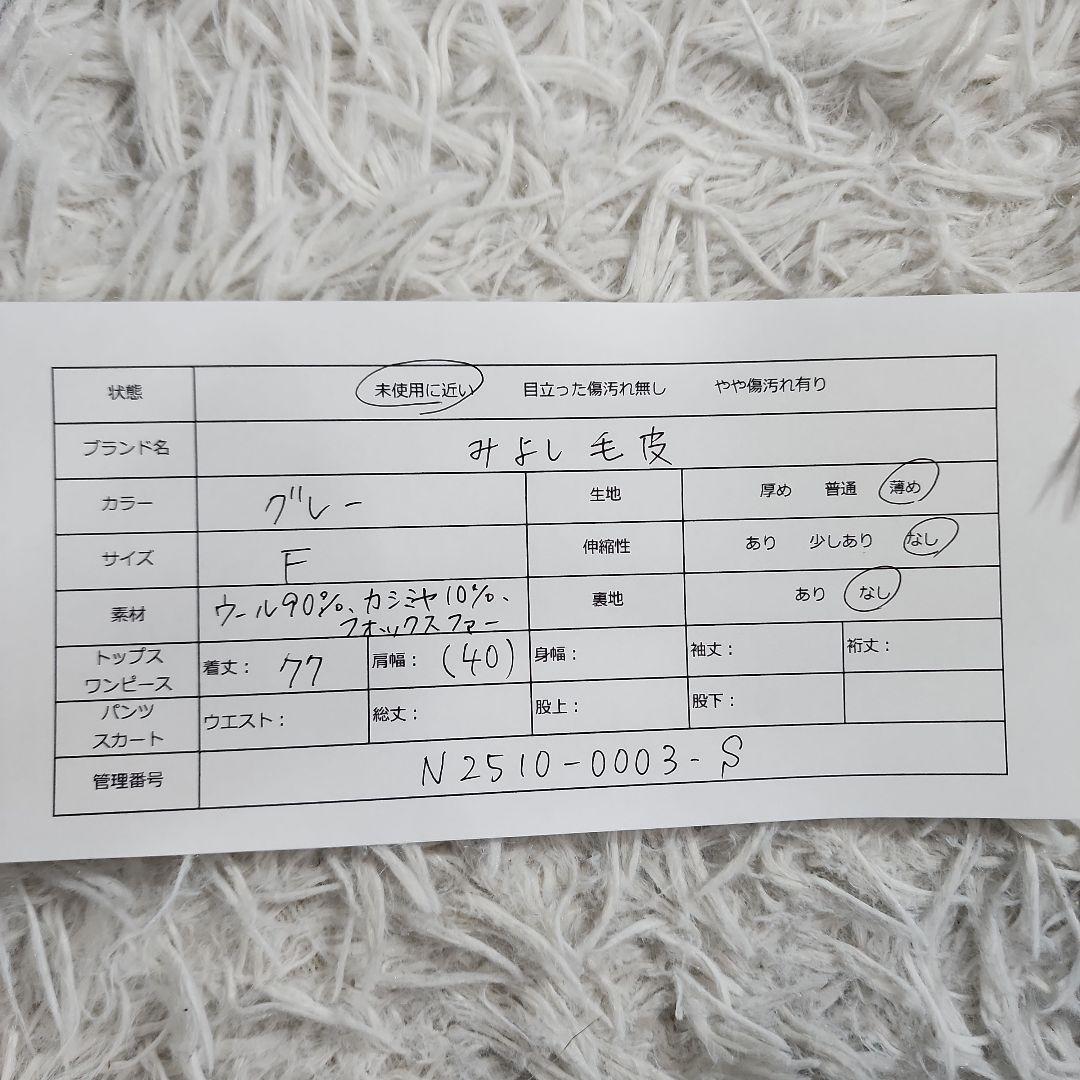 状態 未使用に近い 目立った傷汚れ無し やや傷汚れ有り
ブランド名 みよし毛皮
カラー グレー 生地 厚め 普通 薄め
サイズ F 伸縮性 あり 少しあり なし
素材 ウール90%、カシミヤ10%、 裏地 あり なし
フォックスファー
トップス
ワンピース 着丈: 77 肩幅: (40) 身幅: 袖丈: 裄丈:
パンツ
スカート ウエスト: 総丈: 股上: 股下:
管理番号 N2510-0003-S